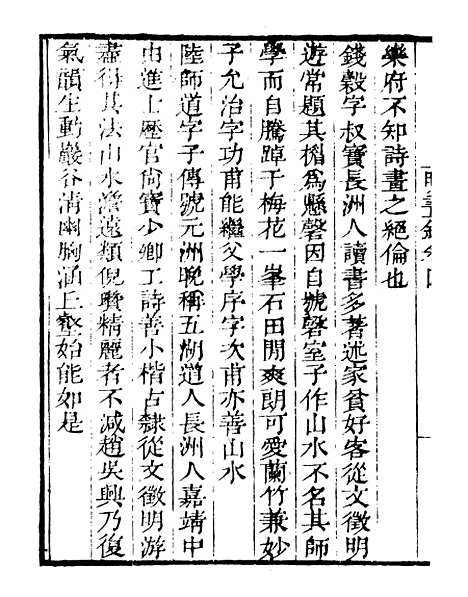 樂府不知詩畫之絕倫也
錢榖字叔寶長洲人讀書多著述家貧好客從文徵明
遊常題其楣爲懸磬因自號磬室子作山水不名其師
學而自騰踔于梅花一峯石田閒爽朗可愛蘭竹兼妙
子允治字功甫能繼父學序字次甫亦善山水
陸師道字子傳號元洲晚稱五湖道人長洲人嘉靖中
由進士歷官尙寶少卿工詩善小楷古隸從文徵明游
盡得其法山水澹遠類倪瓚精麗者不減趙吳興乃復
氣韻生動巖谷清幽胸涵丘壑始能如是